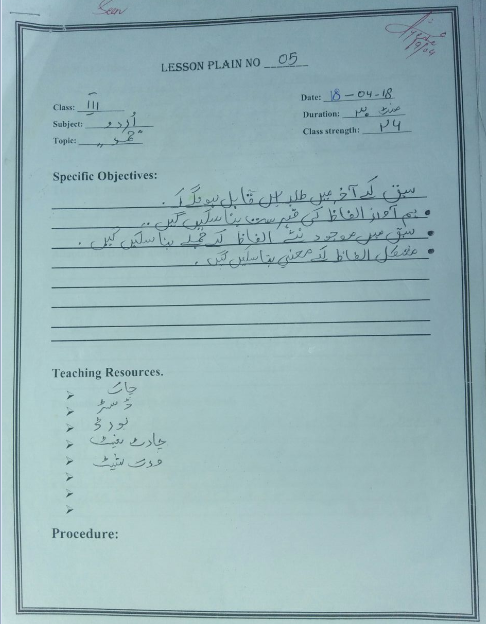 Seen
LESSON PLAIN NO 05
Date: 18-04-18
Class: III
Duration: ۳۰ منٹ
Subject: اُردو
Class strength: ۲۴
Topic:
Specific Objectives:
سبق کے آخر میں طلبہ اس قابل ہونگے کہ.
ہم آواز الفاظ کی فہرست بنا سکیں گیں.
سبق میں موجود نئے الفاظ کے جملے بنا سکیں گیں.
مشکل الفاظ کے معنی بتا سکیں گیں.
Teaching Resources.
➢ چاک
➢ ڈسٹر
➢ بورڈ
➢ چارٹ
➢ ورک شیٹ
➢
➢
➢
Procedure: